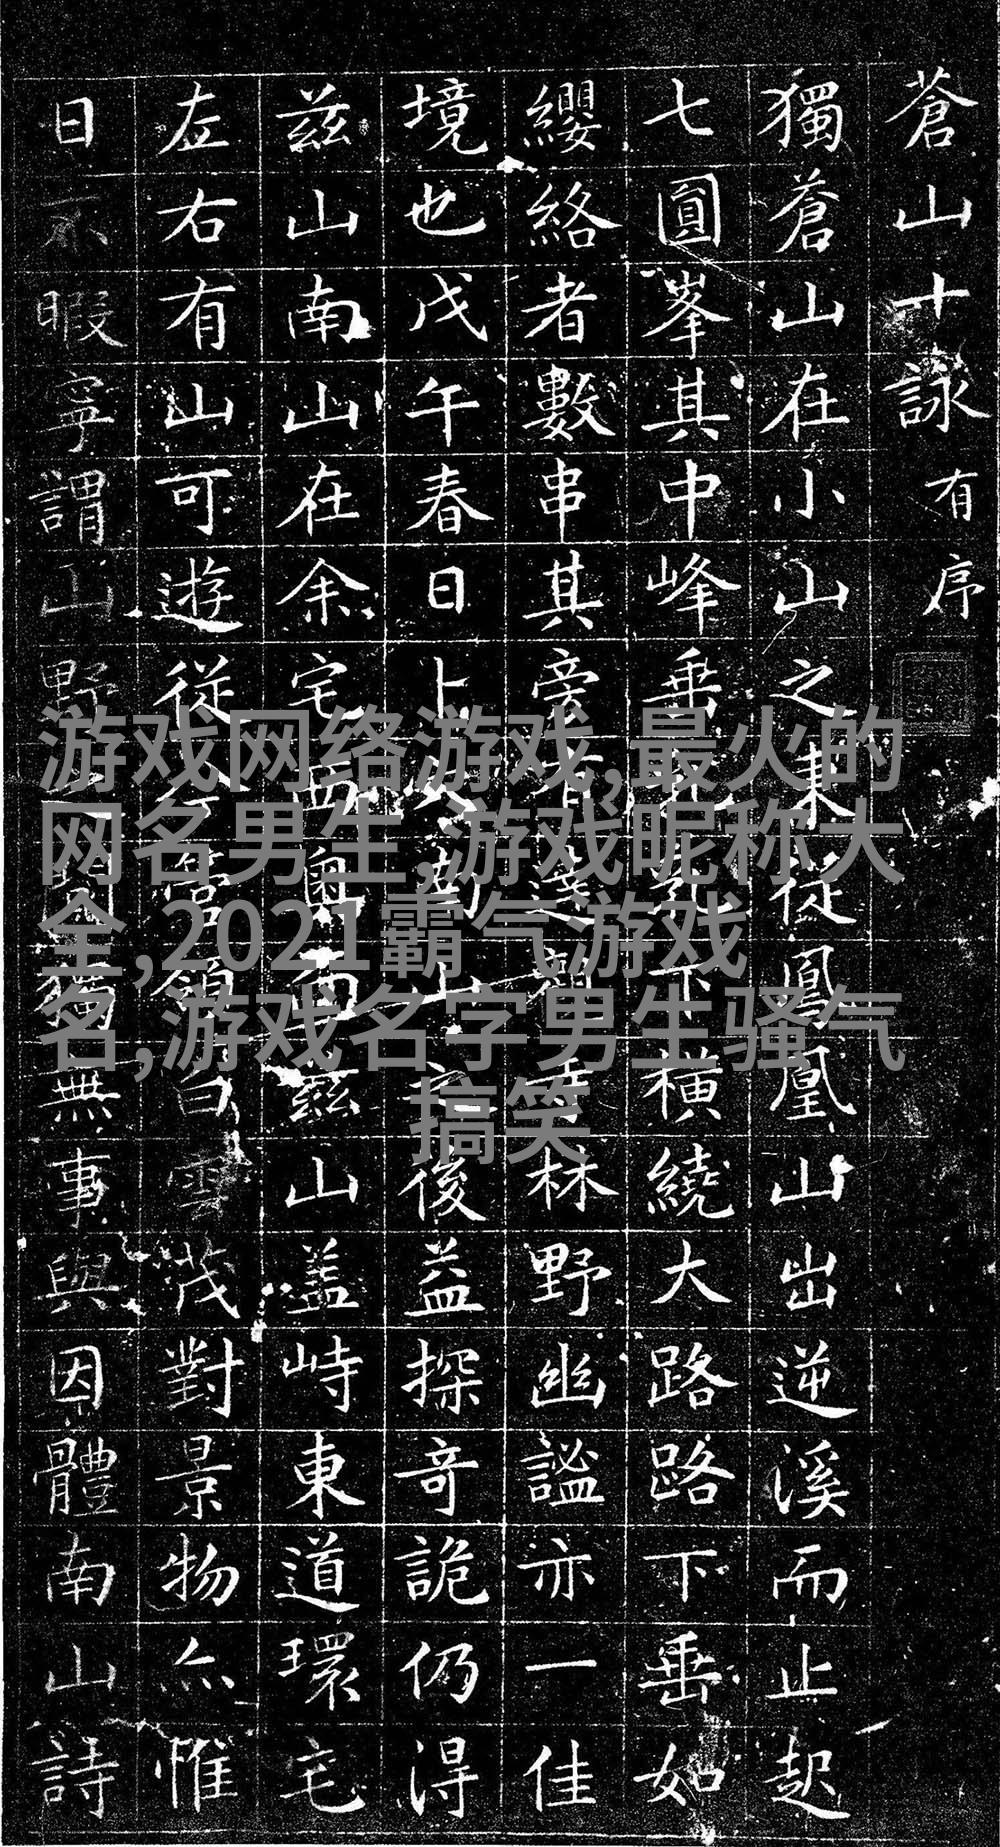 蒼山十詠有序
獨蒼山在小山之東從鳳凰山出逆溪而止起
七圓峯其中峰垂下横繞大路路下垂如
纓絡者數串其旁有林野幽謐亦一佳
境也戊午春日上後益探奇詭仍得
茲山南山在余宅奧而茲山盖峙東道環宅
左右有山可遊從今管領白雲茂對景物亦惟
日不暇寧謂山野獨無事與因體南山詩
游戏网络游戏,最火的
网名男生,游戏昵称大
全,2021霸气游戏
名,游戏名字男生骚气
搞笑